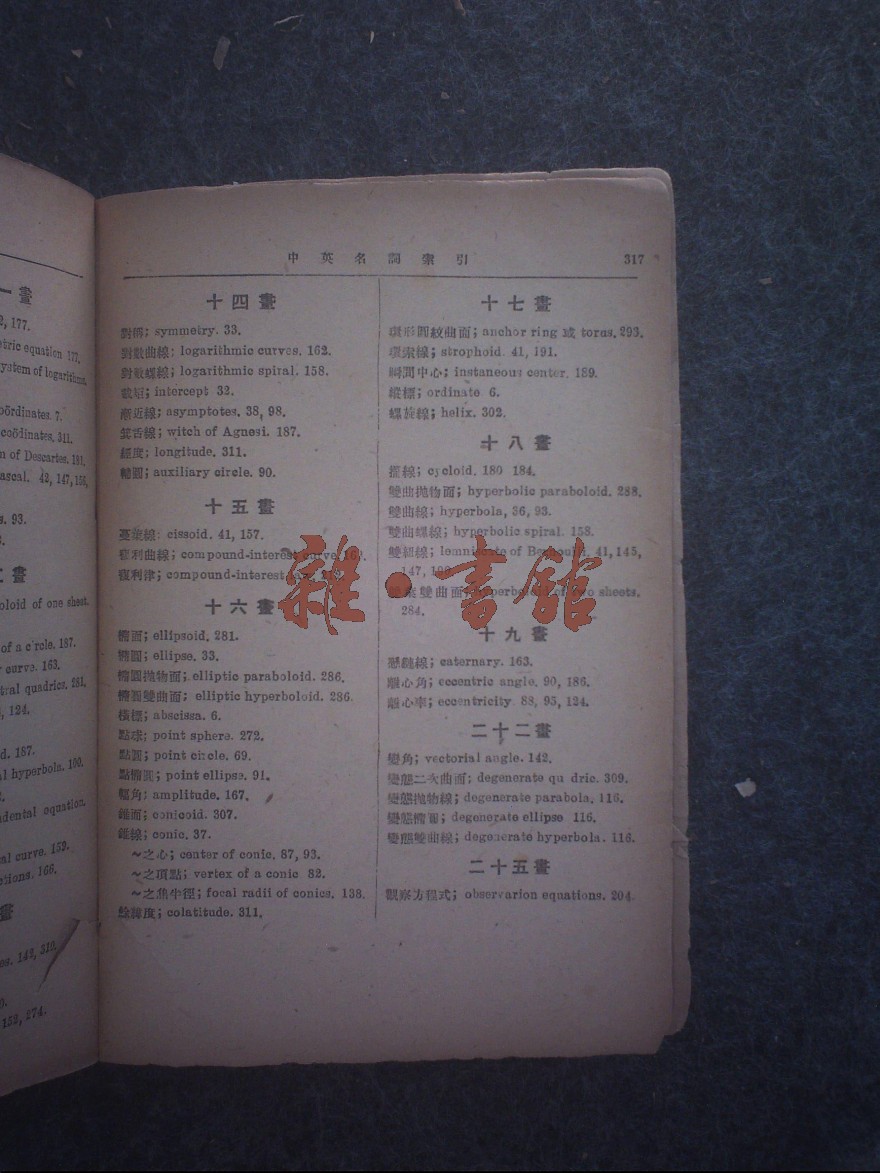 中英名詞索引 317
一畫
2, 177.
tric equation 177.
ystem of logarithms,
oördinates. 7.
coödinates. 311.
m of Descartes. 181.
ascal. 42, 147, 156,
s. 93.
畫
oloid of one sheet.
of a c'rcle. 187.
curve. 163.
tral quadrics. 281.
124.
d. 187.
al hyperbola. 100.
ndental equation.
al curve. 159.
ctions. 166.
畫
es. 142, 310.
152, 274.
十四畫
對稱; symmetry. 33.
對數曲線; logarithmic curves. 162.
對數螺線; logarithmic spiral. 158.
截短; intercept 32.
漸近線; asymptotes. 38, 98.
箕舌線; witch of Agnesi. 187.
經度; longitude. 311.
輔圓; auxiliary circle. 90.
十五畫
蔓葉線; cissoid. 41, 157.
複利曲線; compound-interest curve.
複利律; compound-interest
十六畫
橢面; ellipsoid. 281.
橢圓; ellipse. 33.
橢圓拋物面; elliptic paraboloid. 286.
橢圓雙曲面; elliptic hyperboloid. 286.
橫標; abscissa. 6.
點球; point sphere. 272.
點圓; point circle. 69.
點橢圓; point ellipse. 91.
輻角; amplitude. 167.
錐面; conicoid. 307.
錐線; conic. 37.
~之心; center of conic. 87, 93.
~之頂點; vertex of a conic 82.
~之焦半徑; focal radii of conics. 138.
餘緯度; colatitude. 311.
十七畫
環形圓紋曲面; anchor ring 或 torus. 293.
環索線; strophoid. 41, 191.
瞬間中心; instaneous center. 189.
縱標; ordinate 6.
螺旋線; helix. 302.
十八畫
擺線; cycloid. 180 184.
雙曲拋物面; hyperbolic paraboloid. 288.
雙曲線; hyperbola, 36, 93.
雙曲螺線; hyperbolic spiral. 158.
雙紐線; lemniscate of Bernoulli. 41, 145,
147,
雙葉雙曲面; hyperboloid of two sheets.
284.
十九畫
懸鏈線; caternary. 163.
離心角; eccentric angle. 90, 186.
離心率; eccentricity 88, 95, 124.
二十二畫
變角; vectorial angle. 142.
變態二次曲面; degenerate qu dric. 309.
變態拋物線; degenerate parabola. 116.
變態橢圓; degenerate ellipse 116.
變態雙曲線; degenerate hyperbola. 116.
二十五畫
觀察方程式; observarion equations. 204.
雜·書館